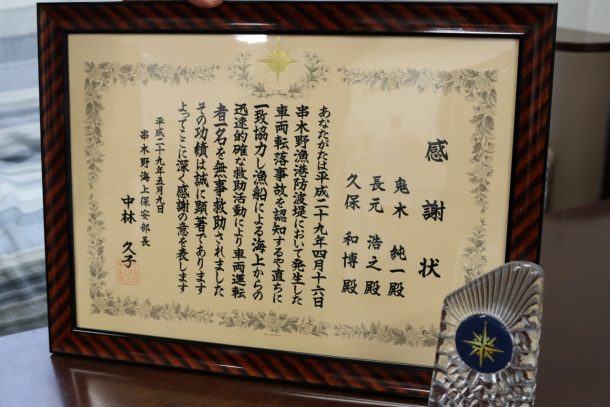 感謝状
鬼木 純一殿
長元 浩之殿
久保 和博殿
あなたがたは平成二十九年四月十六日
串木野漁港防波堤において発生した
車両転落事故を認知するや直ちに
一致協力し漁船による海上からの
迅速的確な救助活動により車両運転
者一名を無事救助されました
その功績は誠に顕著であります
よってここに深く感謝の意を表します
平成二十九年五月九日
串木野海上保安部長
中林 久子